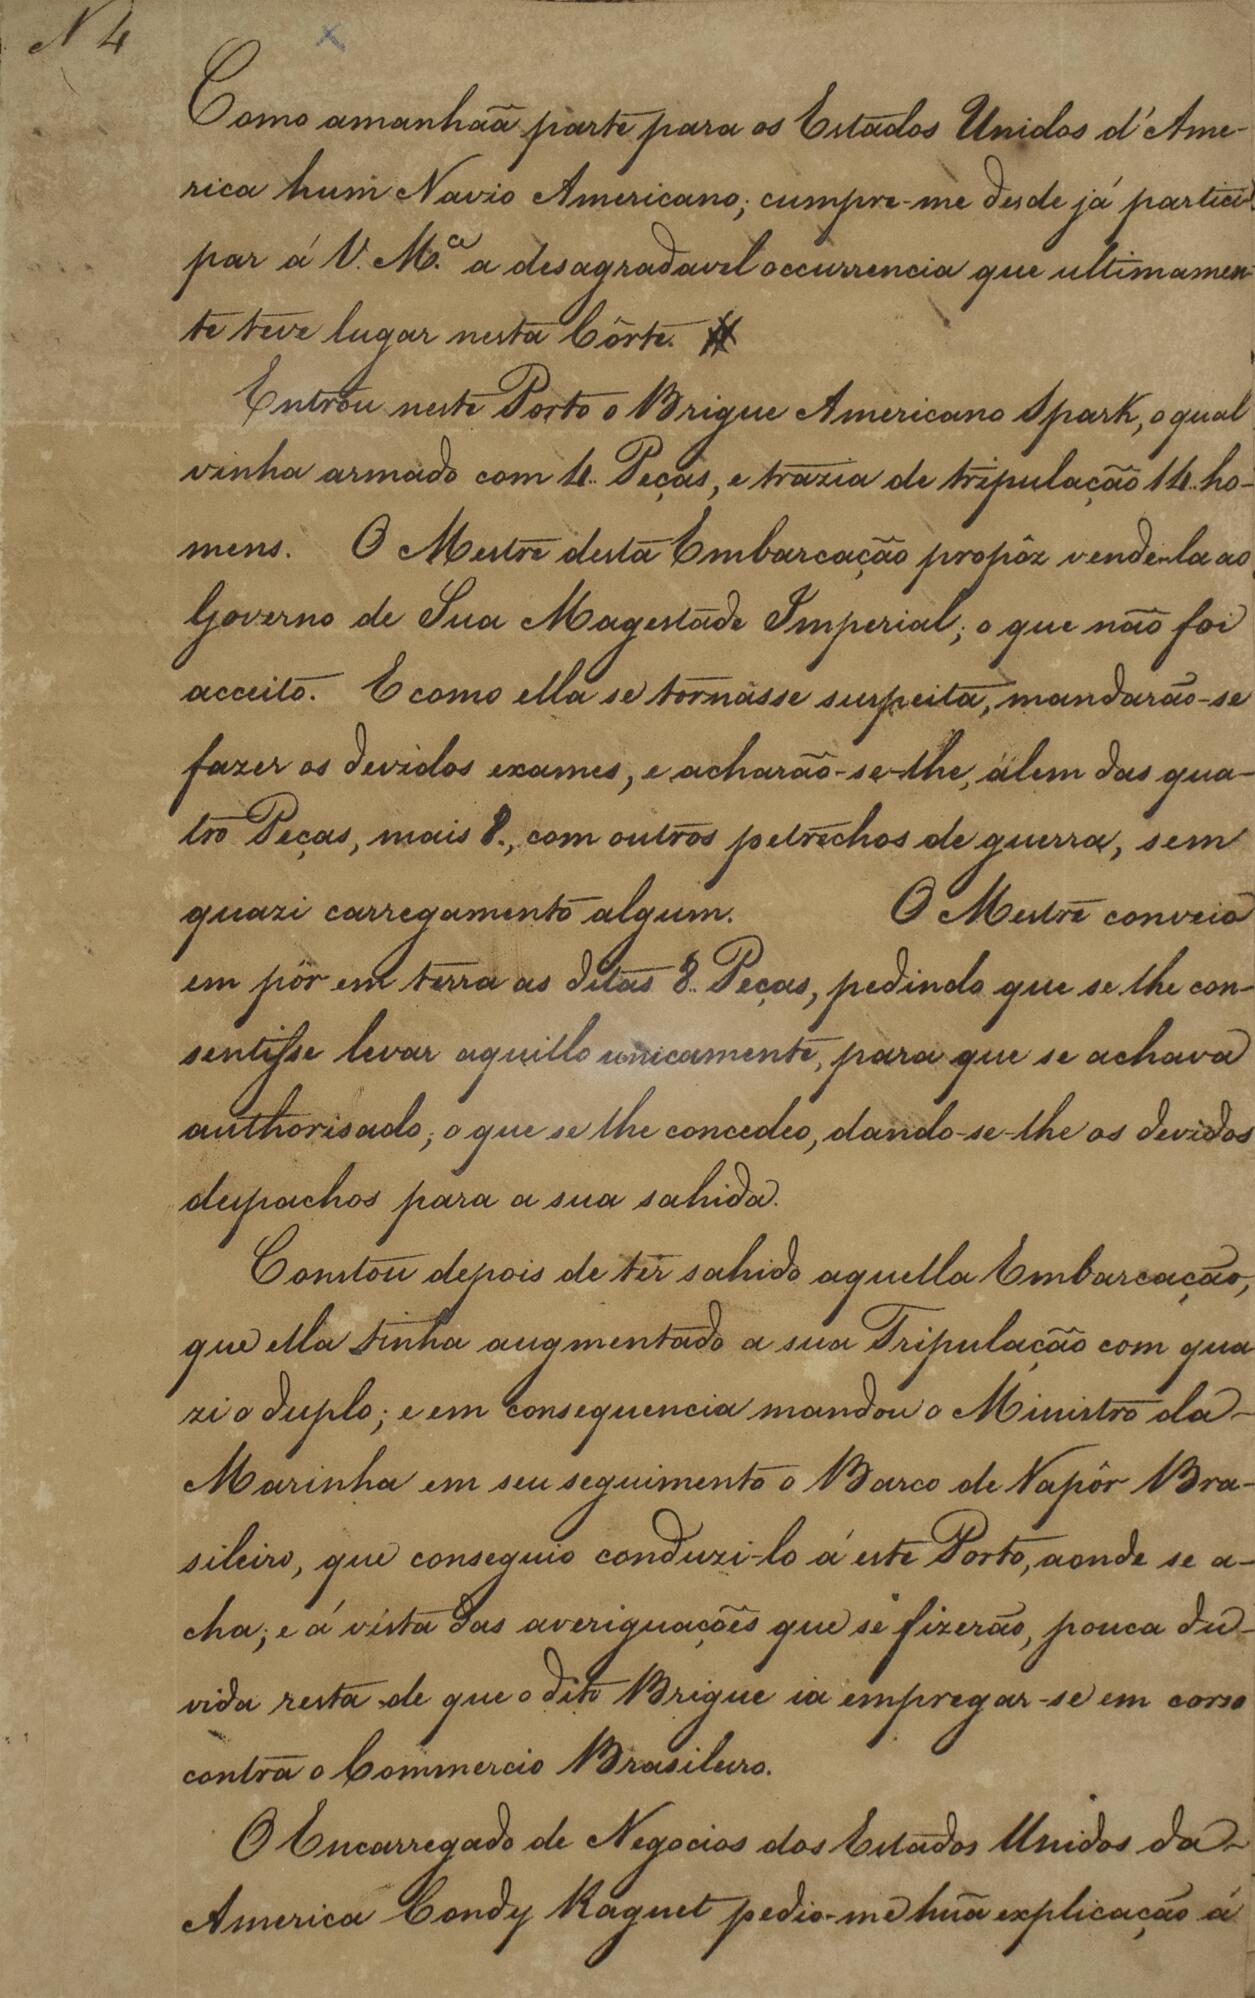 N 4
Como amanhaã parte para os Estados Unidos d'Ame-
rica hum Navio Americano; cumpre-me desde já partici-
par á V. M.ce a desagradavel occurrencia que ultimamen-
te teve lugar nesta Côrte.
Entrou neste Porto o Brigue Americano Spark, o qual
vinha armado com 4.. Peças, e trazia de tripulação 14.. ho-
mens. O Mestre desta Embarcação propôz vende-la ao
Governo de Sua Magestade Imperial; o que não foi
acceito. E como ella se tornásse suspeita, mandarão-se
fazer os devidos exames, e acharão-se-lhe, álem das qua-
tro Peças, mais 8.., com outros petrechos de guerra, sem
quazi carregamento algum. O Mestre conveio
em pôr em terra as ditas 8.. Peças, pedindo que se lhe con-
sentisse levar aquillo unicamente, para que se achava
authorisado; o que se lhe concedeo, dando-se-lhe os devidos
despachos para a sua sahida.
Constou depois de ter sahido aquella Embarcação,
que ella tinha augmentado a sua Tripulação com qua
zi o duplo; e em consequencia mandou o Ministro da-
Marinha em seu seguimento o Barco de Vapôr Bra-
sileiro, que conseguio conduzi-lo á este Porto, aonde se a-
cha; e á vista das averiguações que se fizerão, pouca du-
vida resta de que o dito Brigue ia empregar-se em corso
contra o Commercio Brasileiro.
O Encarregado de Negocios dos Estados Unidos da-
America Condy Raguet pedio-me hũa explicação á